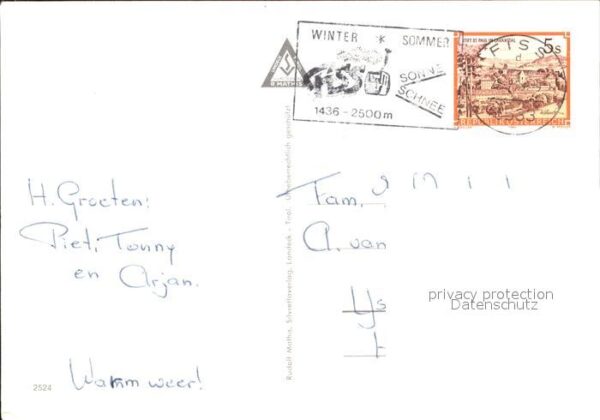 WINTER * SOMMER
FISS
SONNE
SCHNEE
1436-2500m
STIFT ST. PAUL IM LAVANTTAL
5s
REPUBLIK ÖSTERREICH
H. Groeten:
Piet, Tonny
en Arjan.
Warm weer!
2524
Rudolf Mathis, Silvrettaverlag, Landeck - Tirol. Urheberrechtlich geschützt!
Fam.
A. van
privacy protection
Datenschutz